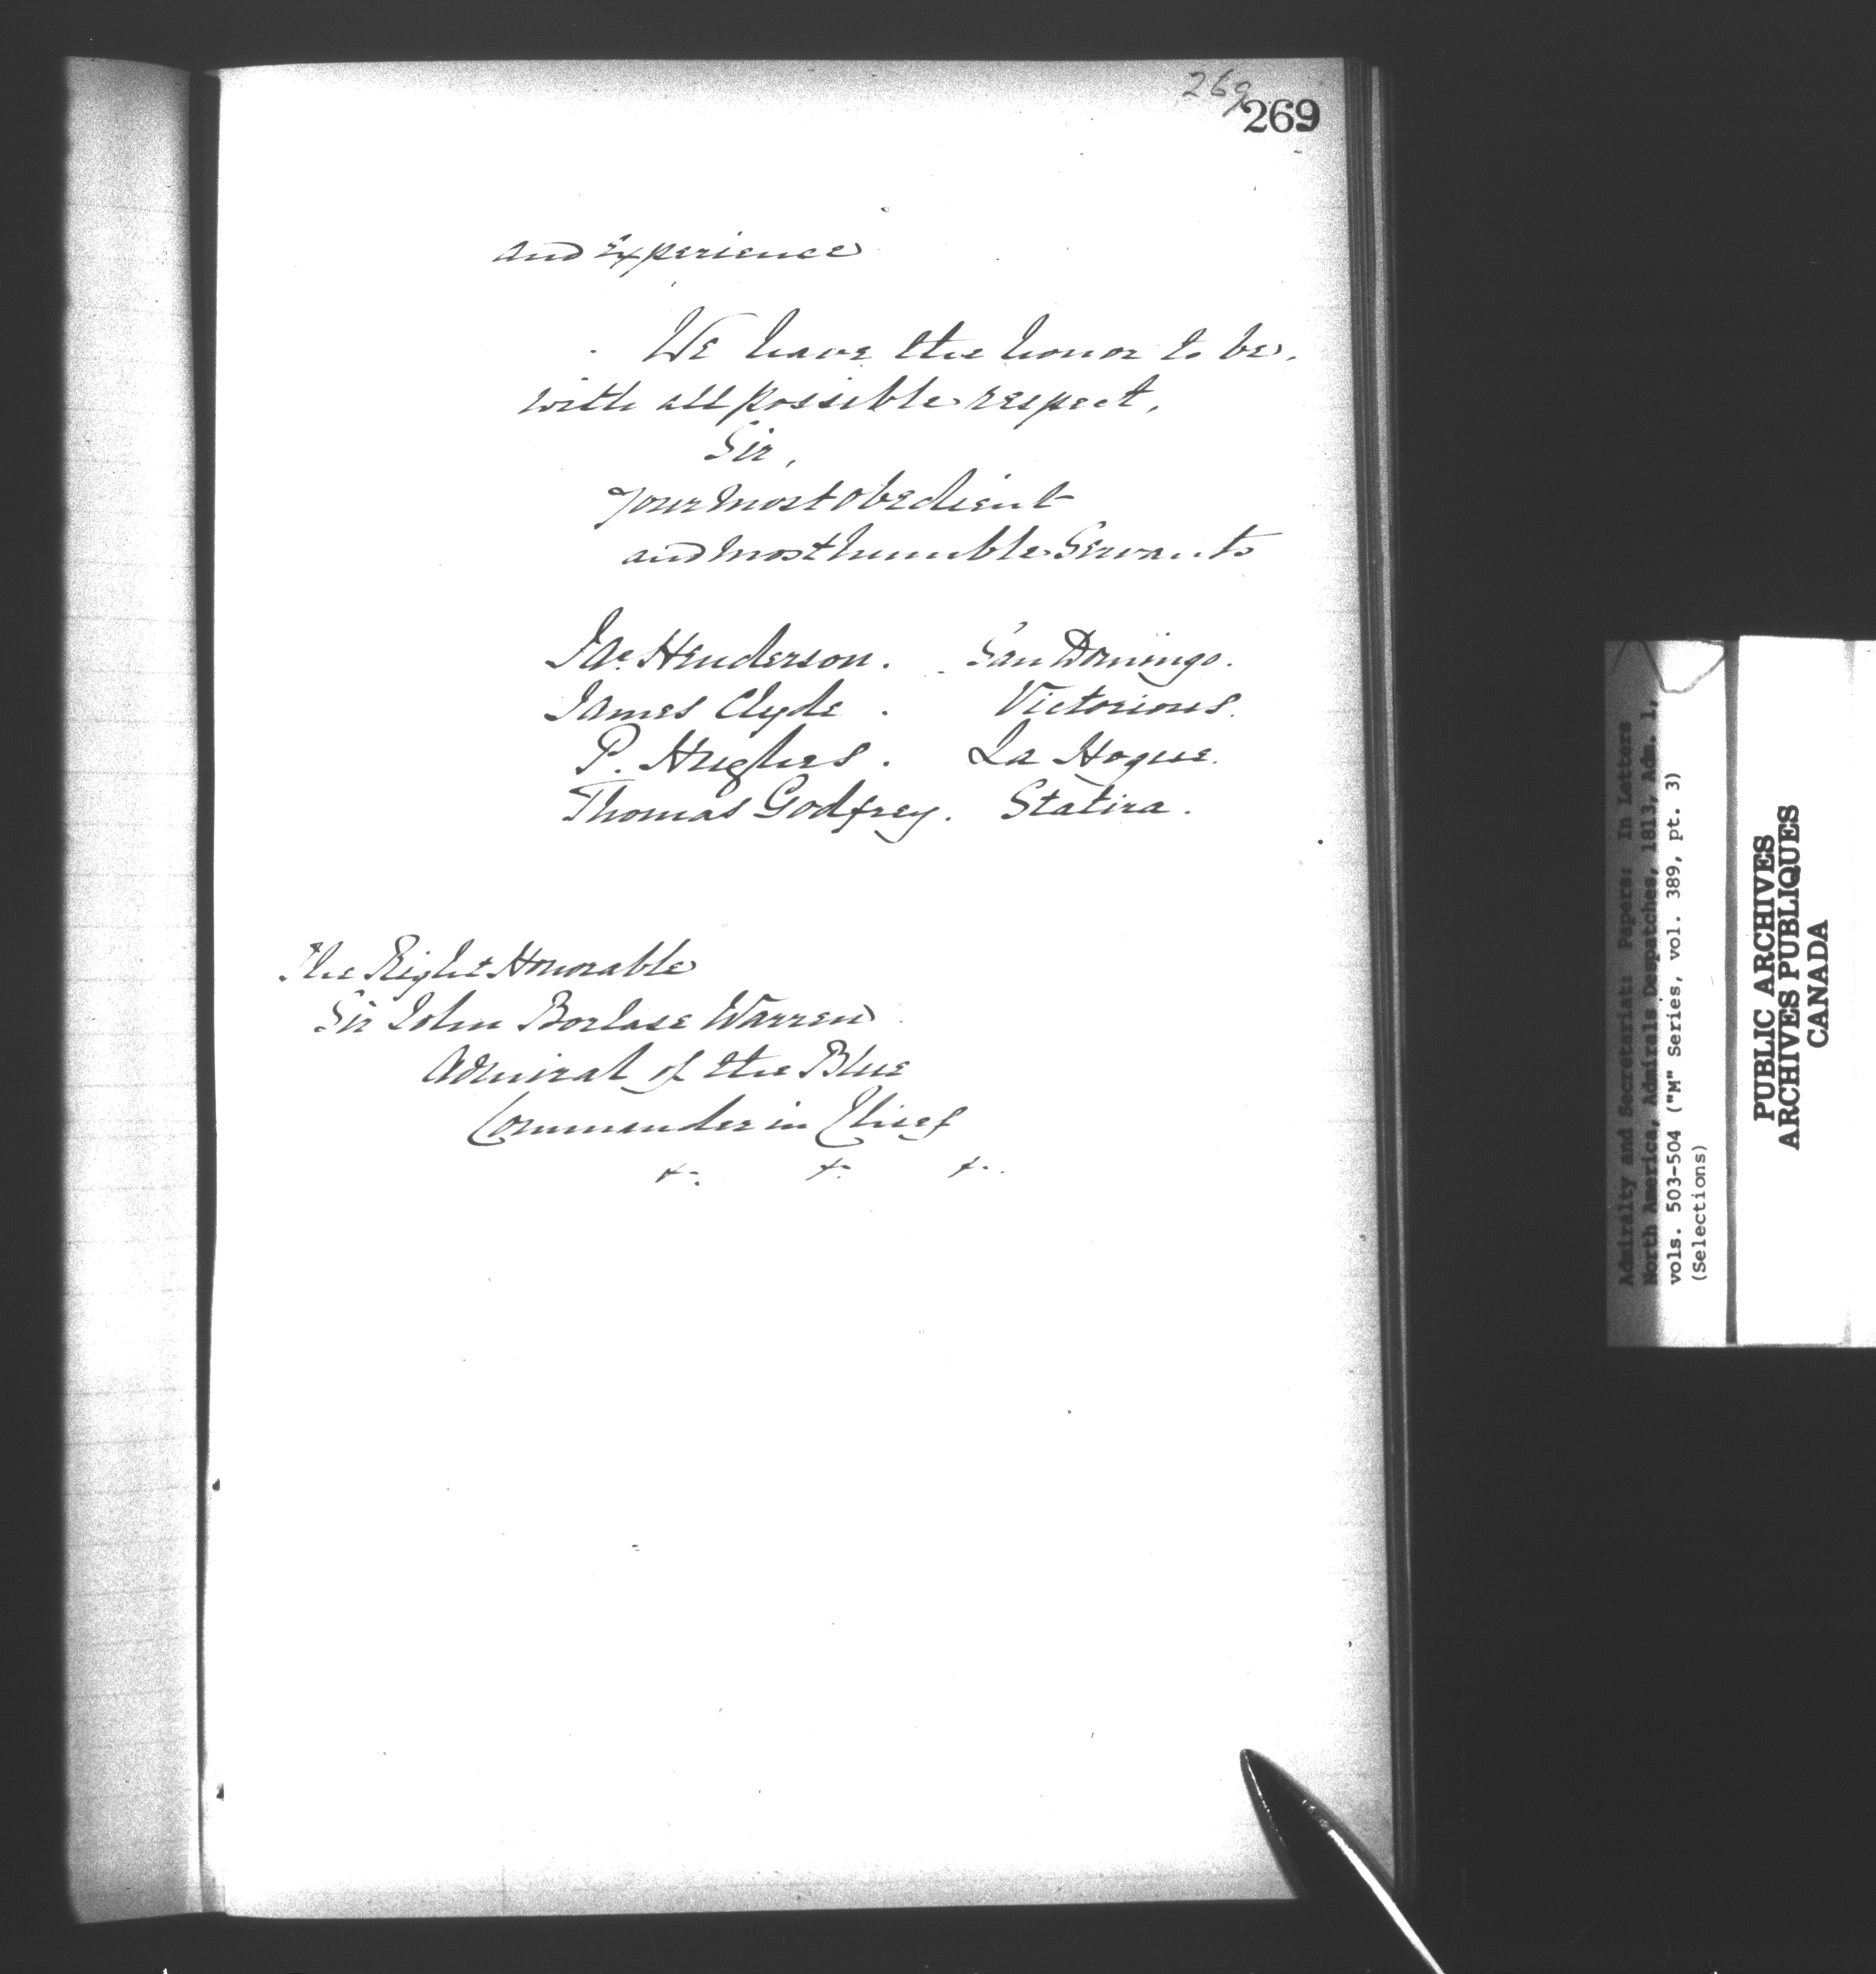 269
269
and Experience
We have the honor to be,
with all possible respect,
Sir,
Your most obedient
and most humble Servants
Jas. Henderson. San Domingo.
James Clyde. Victorious.
P. Hughes. La Hogue.
Thomas Godfrey. Statira.
The Right Honorable
Sir John Borlase Warren
Admiral of the Blue
Commander in Chief
&c. &c. &c.
Admiralty and Secretariat: Papers: In Letters
North America, Admirals Despatches, 1813, Adm. 1,
vols. 503-504 ("M" Series, vol. 389, pt. 3)
(Selections)
PUBLIC ARCHIVES
ARCHIVES PUBLIQUES
CANADA